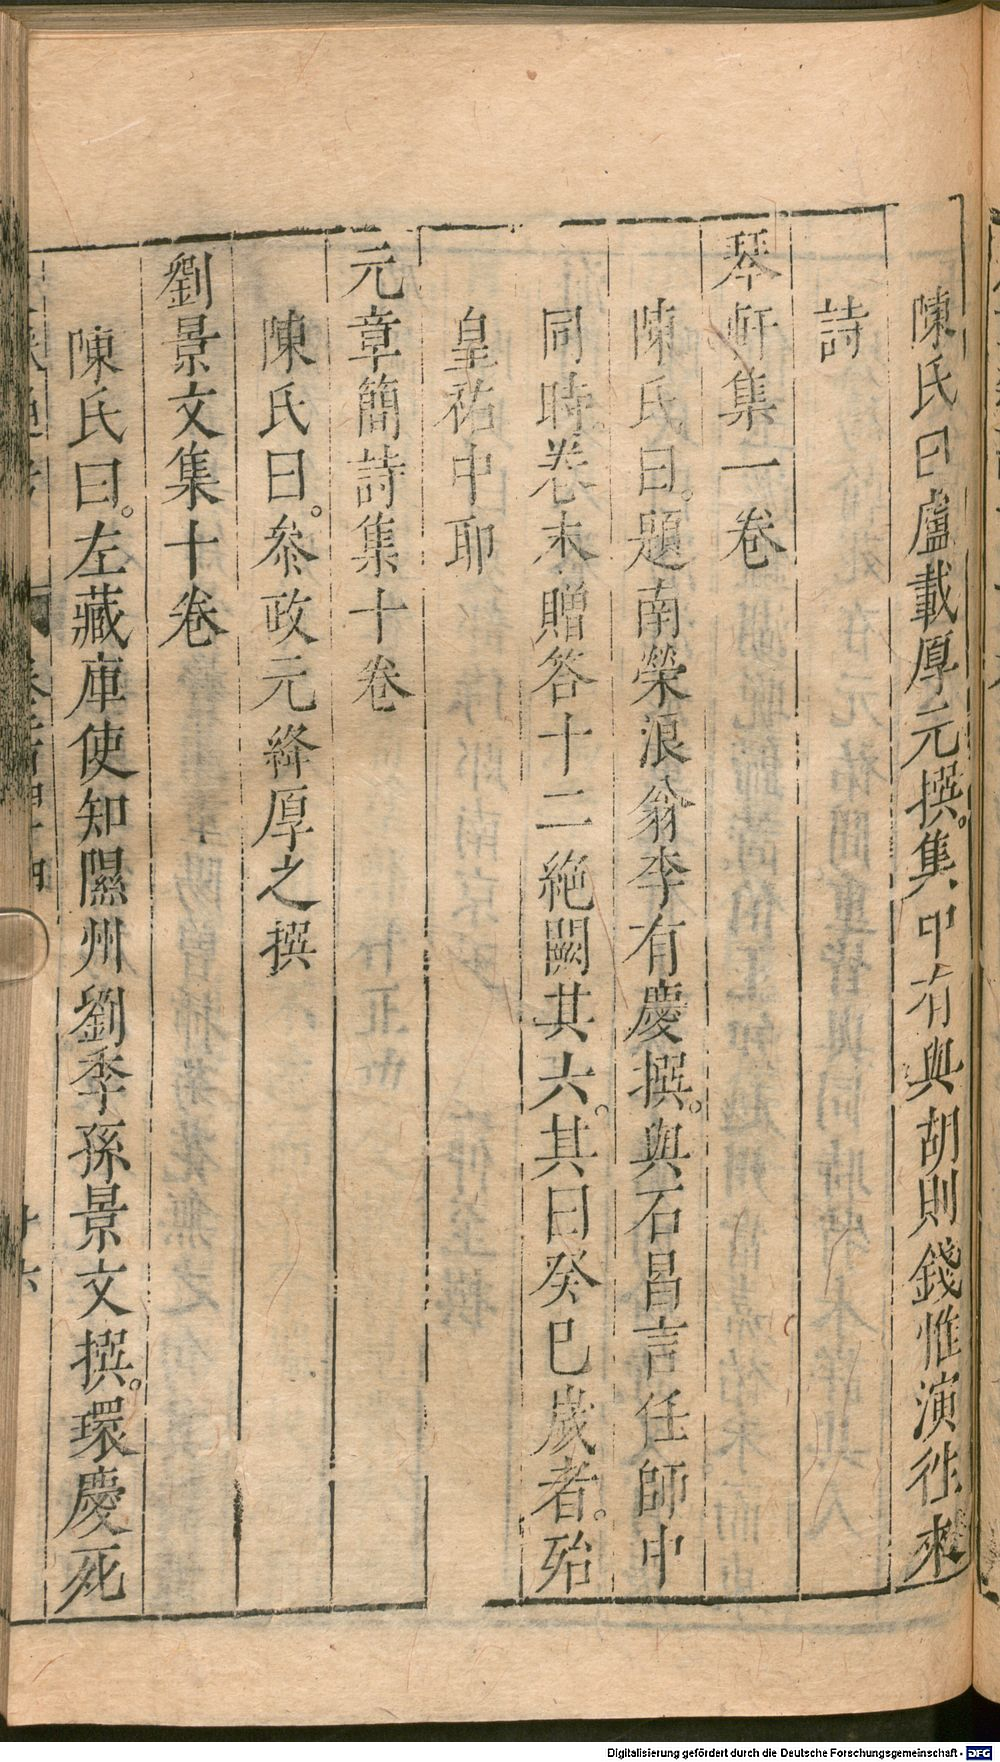 陳氏曰盧載厚元撰。集中有與胡則錢惟演徃來
詩
琴軒集一卷
陳氏曰。題南榮浪翁李有慶撰。與石昌言任師中
同時。卷末贈答十二絶闕其六。其曰癸巳歲者。殆
皇祐中耶
元章簡詩集十卷
陳氏曰。叅政元絳厚之撰
劉景文集十卷
陳氏曰。左藏庫使知隰州劉季孫景文撰。環慶死
Digitalisierung gefördert durch die Deutsche Forschungsgemeinschaft - DFG